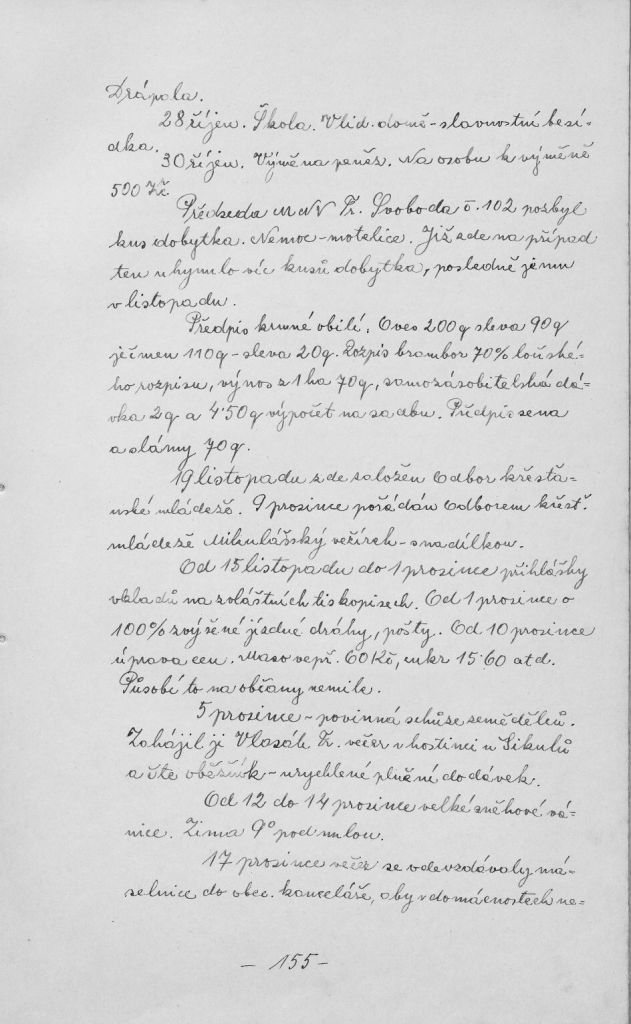 Drápala.
28 říjen. Škola. V lid. domě - slavnostní besí-
dka.
30 říjen. Výměna peněz. Na osobu k výměně
500 Kč.
Předseda MNV Fr. Svoboda č. 102 pozbyl
kus dobytka. Nemoc - motolice. Již zde na případ
ten uhynulo víc kusů dobytka, posledně jemu
v listopadu.
Předpis krmné obilí. Oves 200q sleva 90q
ječmen 110q - sleva 20q. Rozpis brambor 70% loňské-
ho rozpisu, výnos z 1 ha 70q, samozásobitelská dá-
vka 2q a 4·50q výpočet na sadbu. Předpis sena
a slámy 70q.
19 listopadu zde založen Odbor křesťa-
nské mládeže. 9 prosince pořádán Odborem křesť.
mládeže Mikulášský večírek - s nadílkou.
Od 15 listopadu do 1 prosince přihlášky
vkladů na zvláštních tiskopisech. Od 1 prosince o
100% zvýšené jízdné dráhy, pošty. Od 10 prosince
úprava cen. Maso vepř. 60 Kč, cukr 15·60 atd.
Působí to na občany nemile.
5 prosince - povinná schůze zemědělců.
Zahájil ji Vlasák Fr. večer v hostinci u Sikulů
a čte oběžník - urychlené plnění dodávek.
Od 12 do 14 prosince velké sněhové vá-
nice. Zima 9° pod nulou.
17 prosince večer se odevzdávaly má-
selnice do obec. kanceláře, aby v domácnostech ne-
- 155 -